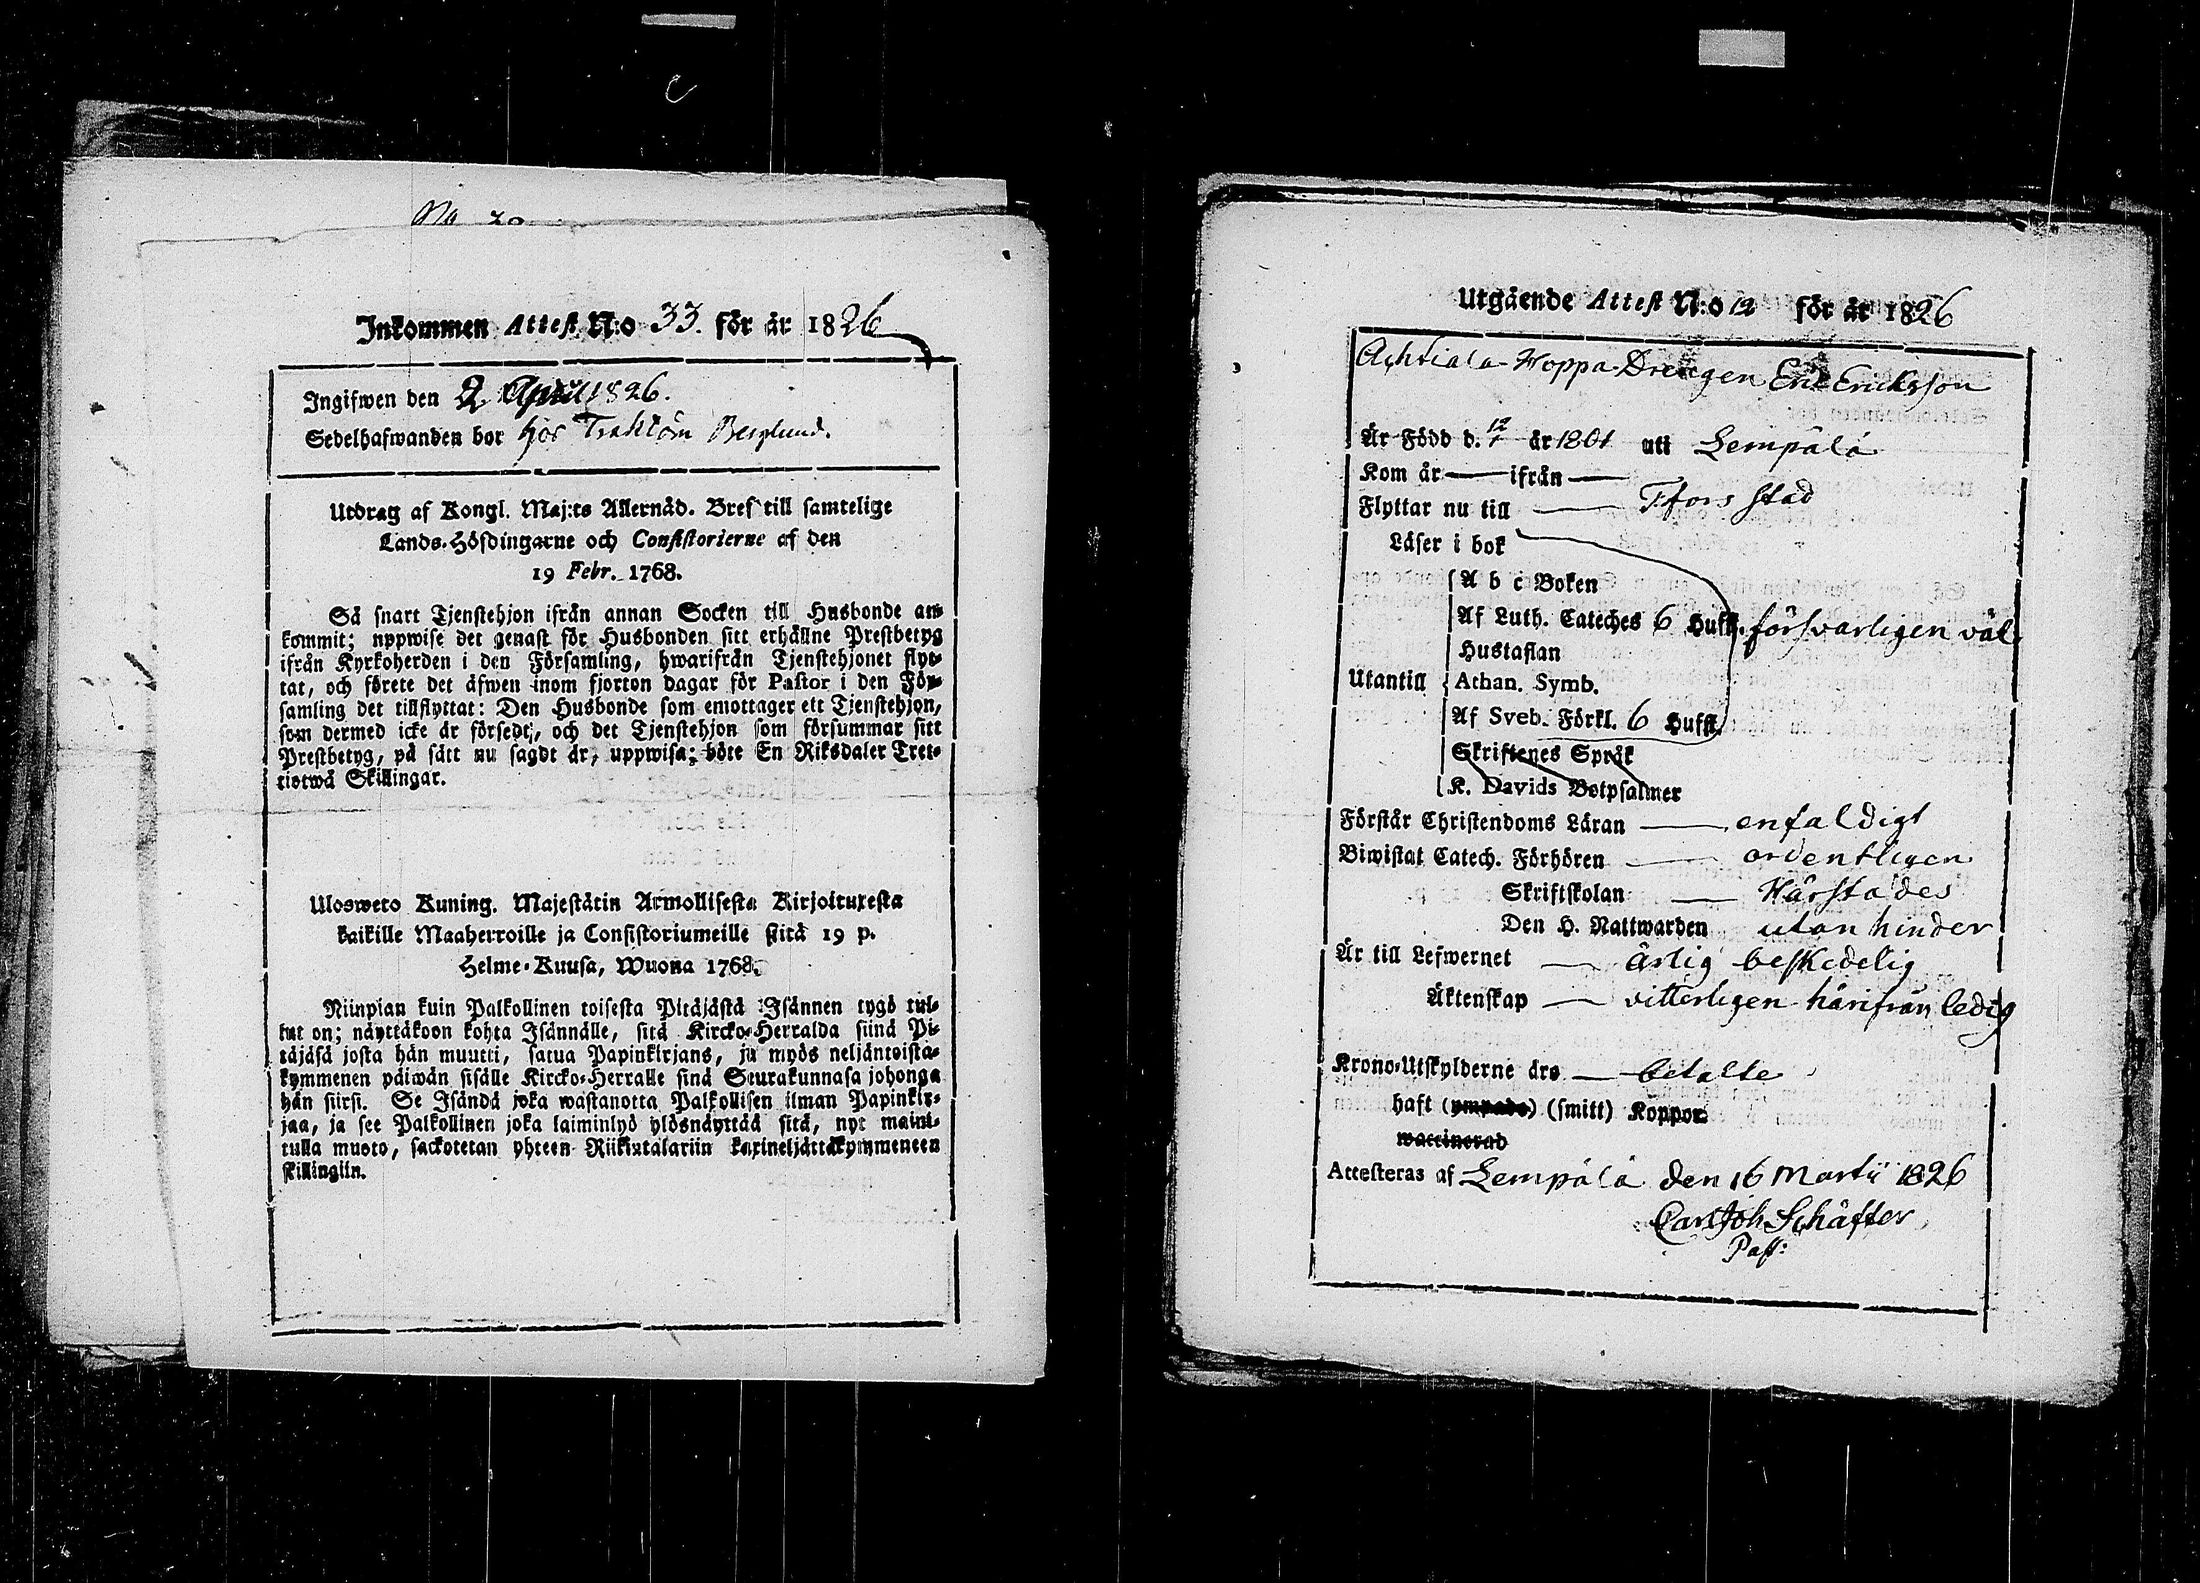 No 20
Inkommen Attest N:o 33. för år 1826
Ingifwen den 2 April 1826.
Sedelhafwanden bor hos Traktöm Berglund.
Utdrag af Kongl. Maj:ts Allernåd. Bref till samtelige
Lands-Höfdingarne och Consistorierne af den
19 Febr. 1768.
Så snart Tjenstehjon ifrån annan Socken till Husbonde an-
kommit; uppwise det genast för Husbonden sitt erhållne Prestbetyg
ifrån Kyrkoherden i den Församling, hwarifrån Tjenstehjonet flyt-
tat, och förete det äfwen inom fjorton dagar för Pastor i den För-
samling det tillflyttat: Den Husbonde som emottager ett Tjenstehjon,
som dermed icke är försedt, och det Tjenstehjon som försummar sitt
Prestbetyg, på sätt nu sagdt är, uppwisa; böte En Riksdaler Tret-
tiotwå Skillingar.
Ulosweto Kuning. Majestätin Armollisesta Kirjoituxesta
kaikille Maaherroille ja Consistoriumeille siitä 19 p.
Helme-Kuusa, Wuona 1768.
Niinpian kuin Palkollinen toisesta Pitäjästä Isännen tygö tul-
lut on; näyttäkoon kohta Isännälle, sitä Kircko-Herralda siinä Pi-
täjäsä josta hän muutti, saatua Papinkirjans, ja myös neljäntoista-
kymmenen päiwän sisälle Kircko-Herralle sinä Seurakunnasa johonga
hän siirsi. Se Isändä joka wastanotta Palkollisen ilman Papinkir-
jaa, ja see Palkollinen joka laiminlyö ylösnäyttää sitä, nyt maini-
tulla muoto, sackotetan yhteen Riikixtalariin kaxineljättäkymmeneen
skillingiin.
Utgående Attest N:o 12 för år 1826
Achtiala-Hoppa-Drengen Eric Ericksson
Är Född d. 12/1 år 1801 uti Lempälä
Kom år — ifrån —
Flyttar nu till — Tfors stad
Läser i bok
A b c Boken
Af Luth. Cateches 6 Hufst. försvarligen väl.
Hustaflan
Utantill Athan. Symb.
Af Sveb. Förkl. 6 Hufst.
Skriftenes Språk
K. Davids Botpsalmer
Förstår Christendoms Läran — enfaldigt
Biwistat Catech. Förhören — ordentligen
Skriftskolan — Härstädes
Den H. Nattwarden utan hinder
Är till Lefwernet — ärlig beskedelig
Äktenskap — vitterligen härifrån ledig
Krono-Utskylderne äro — betalte
haft (ympade) (smitt) Koppor.
waccinerad
Attesteras af Lempälä den 16 Martii 1826
Carl Joh Schäfter
Past: